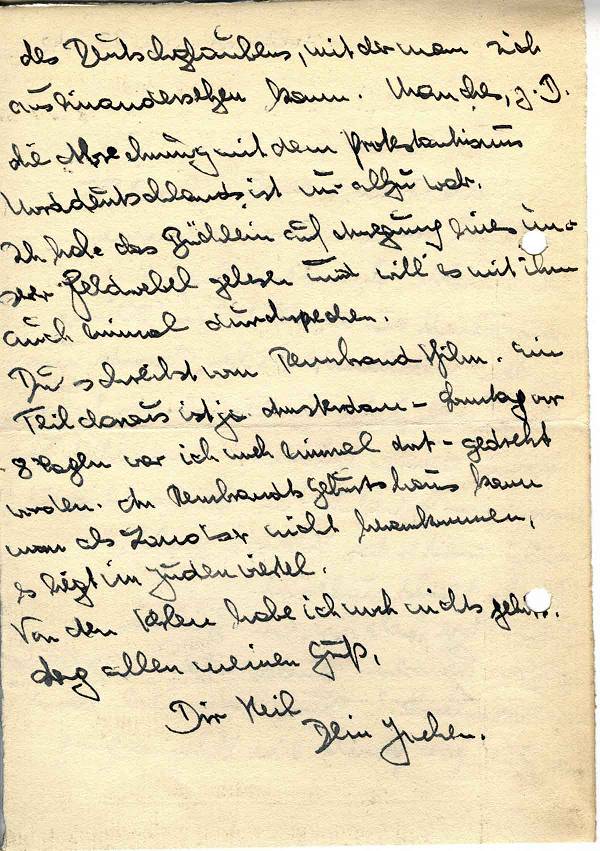 des Deutschglaubens, mit der man sich
auseinandersetzen kann. Manches, z.B.
die Abrechnung mit dem Protestantismus
Norddeutschlands ist nur allzu wahr.
Ich habe das Büchlein auf Anregung eines
Feldwebel gelesen und will es mit ihm
auch einmal durchsprechen.
Du schreibst vom Rembrandtfilm. Ein
Teil daraus ist ja Amsterdam – Sonntag vor
8 Tagen war ich noch einmal dort – gedreht
worden. An Rembrandts Geburtshaus kann
man als nicht herankommen,
es liegt im Judenviertel.
Von den habe ich noch nichts gehört.
Sag allen meinen Gruß.
Dir Heil
Dein Jochen.